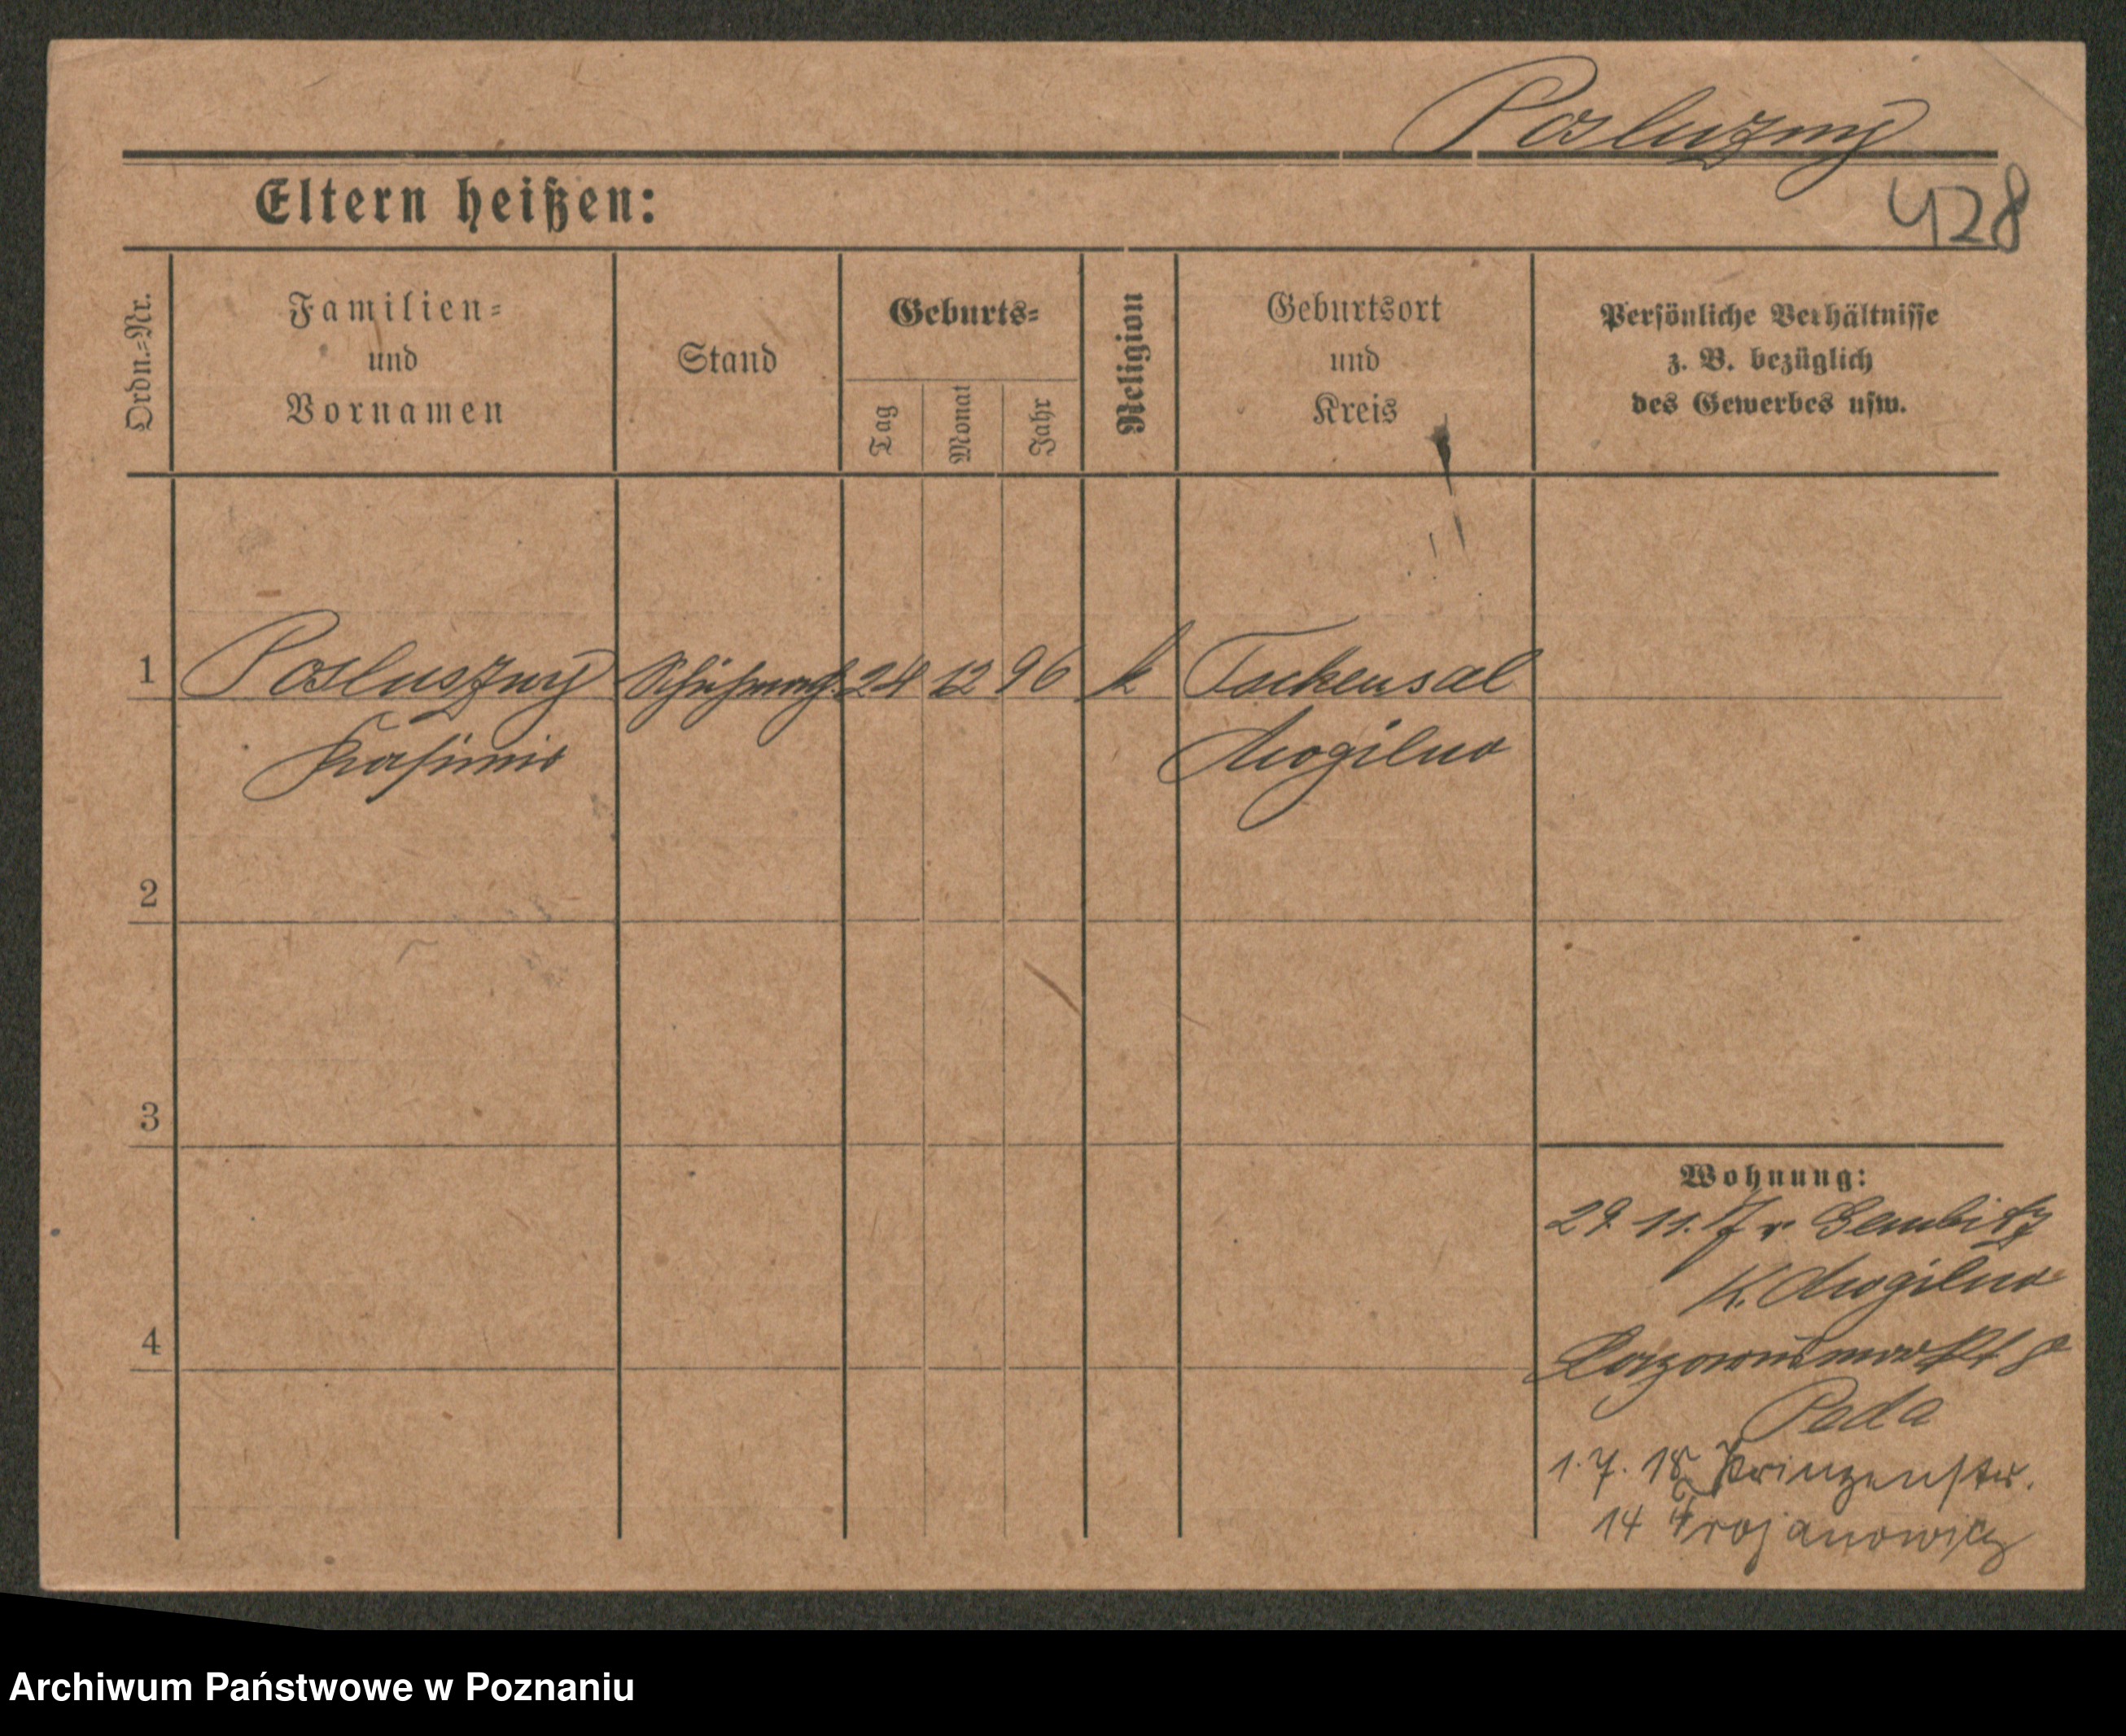 Posluzny
Eltern heißen:
428
Ordn.-Nr.
Familien-
und
Vornamen
Stand
Geburts-
Tag
Monat
Jahr
Religion
Geburtsort
und
Kreis
Persönliche Verhältnisse
z. B. bezüglich
des Gewerbes usw.
1 Posluszny Schuhmach. 24 12 96 k Tockensal
Kasimir Mogilno
2
3
4
Wohnung:
29. 11. 17 v. Gembitz
K. Mogilno
8
Peda
1. 7. 18 Prinzenstr.
14 Trojanowicz
Archiwum Państwowe w Poznaniu